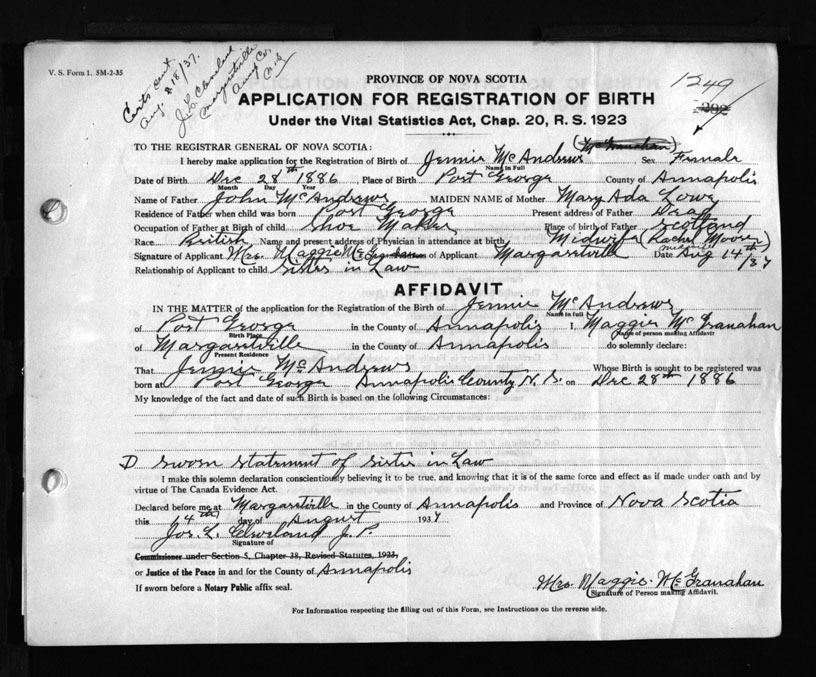 V. S. Form 1. 5M-2-35
Certs sent
Aug. 18/37.
J. L. Cleveland
Margaretville
Ann Co.
N.S.
1249
292
PROVINCE OF NOVA SCOTIA
APPLICATION FOR REGISTRATION OF BIRTH
Under the Vital Statistics Act, Chap. 20, R. S. 1923
TO THE REGISTRAR GENERAL OF NOVA SCOTIA: (McGranahan)
I hereby make application for the Registration of Birth of Jennie McAndrews Sex Female
Name in Full
Date of Birth Dec 28th 1886, Place of Birth Port George County of Annapolis
Month Day Year
Name of Father John McAndrews MAIDEN NAME of Mother Mary Ada Lowe
Residence of Father when child was born Port George Present address of Father Dead
Occupation of Father at Birth of child Shoe Maker Place of birth of Father Scotland
Race British Name and present address of Physician in attendance at birth Midwife (Rachel Moores)
Signature of Applicant Mrs. Maggie McGranahan of Applicant Margaretville Date Aug 14th/37
Relationship of Applicant to child Sister in Law
AFFIDAVIT
IN THE MATTER of the application for the Registration of the Birth of Jennie McAndrews
Name in full
of Port George in the County of Annapolis I, Maggie McGranahan
Birth Place Name of person making Affidavit
of Margaretville in the County of Annapolis do solemnly declare:
Present Residence
That Jennie McAndrews Whose Birth is sought to be registered was
born at Port George Annapolis County N.S. on Dec 28th 1886
My knowledge of the fact and date of such Birth is based on the following Circumstances:
D Sworn Statement of Sister in Law
I make this solemn declaration conscientiously believing it to be true, and knowing that it is of the same force and effect as if made under oath and by
virtue of The Canada Evidence Act.
Declared before me at Margaretville in the County of Annapolis and Province of Nova Scotia
this 14th day of August 1937
Jos. L. Cleveland J. P.
Signature of
Commissioner under Section 5, Chapter 38, Revised Statutes, 1923,
or Justice of the Peace in and for the County of Annapolis
If sworn before a Notary Public affix seal.
Mrs. Maggie. McGranahan
Signature of Person making Affidavit.
For Information respecting the filling out of this Form, see Instructions on the reverse side.